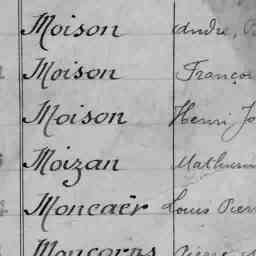 Moison André,
Moison Franço
Moison Henri Jo
Moizan Mathurin
Moncaër Louis Pier
Moncorps Pierre